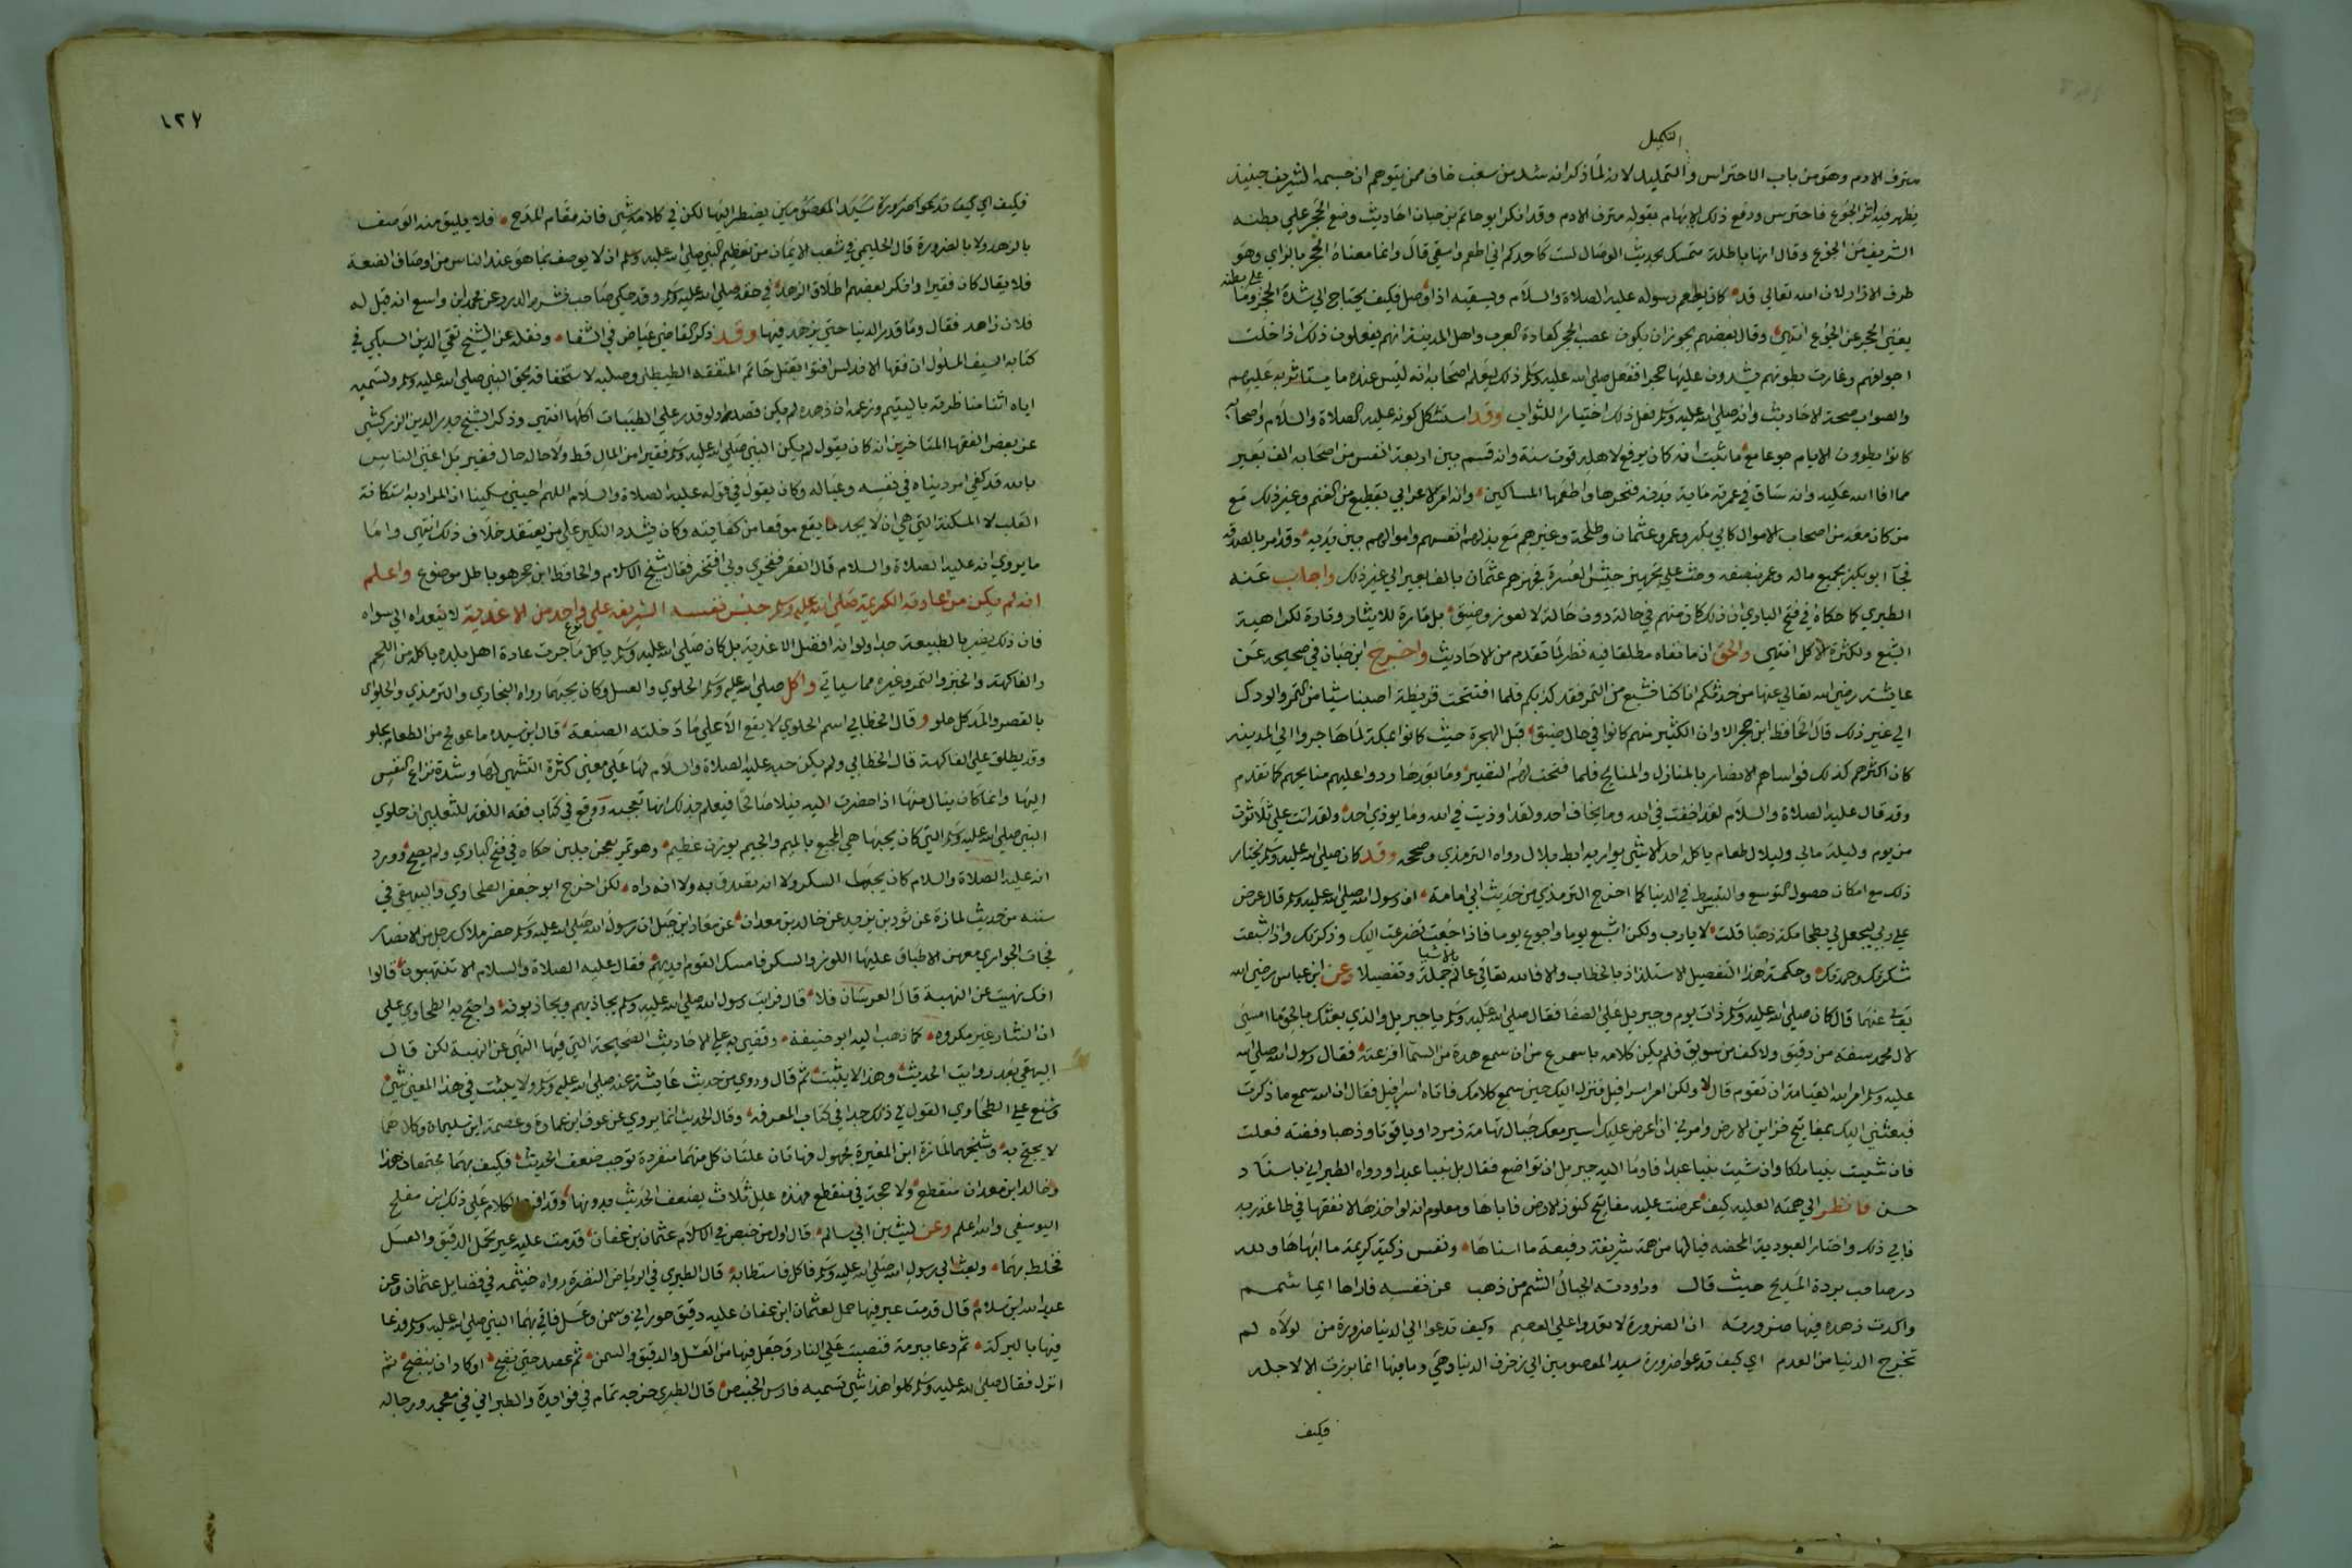 التكميل
مترف الادم وهو من باب الاحتراس والتكميل لانه لما ذكر انه شد من سغب خاف ممن يتوهم ان جسمه الشريف حينئذ
يظهر فيه اثر الجوع فاحترس ودفع ذلك الابهام بقوله مترف الادم وقد انكر ابو حاتم بن حبان احاديث وضع الحجر علي بطنه
الشريف من الجوع وقال انها باطلة متمسك بحديث الوصال لست كاحدكم اني اطعم واسقي قال وانما معناه الحجز بالزاي وهو
علي بطنه
طرف الازار لان الله تعالي قد كان يطعم رسوله عليه الصلاة والسلام ويسقيه اذا وصل فكيف يحتاج الي شد الحجر وما
يغني الحجر عن الجوع انتهي وقال بعضهم يجوز ان يكون عصب الحجر كعادة العرب واهل المدينة انهم يفعلون ذلك اذا خلت
اجوافهم وغارت بطونهم يشدون عليها حجرا ففعل صلي الله عليه وسلم ذلك ليعلم اصحابه انه ليس عنده ما يستاثر به عليهم
والصواب صحة الاحاديث وانه صلي الله عليه وسلم فعل ذلك اختيارا للثواب وقد استشكل كونه عليه الصلاة والسلام واصحابه
كانوا يطوون الايام جوعا مع ما ثبت انه كان يرفع لاهله قوت سنة وانه قسم بين اربعة انفس من اصحابه الف بعير
مما افا الله عليه وانه ساق في عمرته ماية بدنة فنحرها واطعمها المساكين وانه امر لاعرابي بقطيع من الغنم وغير ذلك مع
من كان معه من اصحاب الاموال كابي بكر وعمر وعثمان وطلحة وغيرهم مع بذلهم انفسهم واموالهم بين يديه وقد امر بالصدقة
فجا ابو بكر بجميع ماله وعمر بنصفه وحث علي تجهيز جيش العسرة فجهزهم عثمان بالف بعير الي غير ذلك واجاب عنه
الطبري كما حكاه في فتح الباري ان ذلك كان منهم في حالة دون حالة لا لعوز وضيق بل تارة للايثار وتارة لكراهية
الشبع ولكثرة الاكل انتهي والحق ان ما نفاه مطلقا فيه نظر لما تقدم من الاحاديث واخرج ابن حبان في صحيحه عن
عايشة رضي الله تعالي عنها من حدثكم انا كنا نشبع من التمر فقد كذبكم فلما افتتحت قريظة اصبنا شيا من التمر والودك
الي غير ذلك قال الحافظ ابن حجر الا وان الكثير منهم كانوا في حال ضيق قبل الهجرة حيث كانوا بمكة لما هاجروا الي المدينة
كان اكثرهم كذلك فواساهم الانصار بالمنازل والمنايح فلما فتحت لهم النضير وما بعدها ردوا عليهم منايحهم كما تقدم
وقد قال عليه الصلاة والسلام لقد اخفت في الله وما يخاف احد ولقد اوذيت في الله وما يوذي احد ولقد اتت علي ثلاثون
من يوم وليلة مالي وليلال طعام ياكله احد الا شي يواريه ابط بلال رواه الترمذي وصححه وقد كان صلي الله عليه وسلم يختار
ذلك مع امكان حصول التوسع والتبسط في الدنيا كما اخرج الترمذي من حديث ابي امامة ان رسول الله صلي الله عليه وسلم قال عرض
علي ربي ليجعل لي بطحا مكة ذهبا قلت لا يارب ولكن اشبع يوما واجوع يوما فاذا جعت تضرعت اليك وذكرتك واذا شبعت
بالاشيا
شكرتك وحمدتك وحكمة هذا التفصيل الاستلذاذ بالخطاب والا فالله تعالي عالم جملة وتفصيلا وعن ابن عباس رضي الله
تعالي عنهما قال كان صلي الله عليه وسلم ذات يوم وجبريل علي الصفا فقال صلي الله عليه وسلم يا جبريل والذي بعثك بالحق ما امسي
لال محمد سفة من دقيق ولا كف من سويق فلم يكن كلامه باسرع من ان سمع هدة من السما افزعته فقال رسول الله صلي الله
عليه وسلم امر الله القيامة ان تقوم قال لا ولكن امر اسرافيل فنزل اليك حين سمع كلامك فاتاه اسرافيل فقال ان الله سمع ما ذكرت
فبعثني اليك بمفاتيح خزاين الارض وامرني ان اعرض عليك اسير معك جبال تهامة زمردا وياقوتا وذهبا وفضة فعلت
فان شيت نبيا ملكا وان شيت نبيا عبدا فاوما اليه جبريل ان تواضع فقال بل نبيا عبدا ورواه الطبراني باسناد
حسن فانظر الي همته العليه كيف عرضت عليه مفاتيح كنوز الارض فاباها ومعلوم انه لو اخذها لانفقها في طاعة ربه
فابي ذلك واختار العبودية المحضه فيالها من همة شريفة رفيعة ما اسناها ونفس زكية كريمة ما ابهاها ولله
در صاحب بردة المديح حيث قال وراودته الجبال الشم من ذهب عن نفسه فاراها ايما شمم
واكدت زهده فيها ضرورته ان الضرورة لا تعدوا علي العصم وكيف تدعوا الي الدنيا ضرورة من لولاه لم
تخرج الدنيا من العدم اي كيف تدعوا ضرورة سيد المعصومين الي زخرف الدنيا وهي وما فيها انما برزت الا لاجله
فكيف
١٢٧
فكيف اي كيف تدعوا ضرورة سيد المعصومين يضطر اليها لكن في كلامه شي فانه مقام المدح فلا يليق منه الوصف
بالزهد ولا بالضرورة قال الحليمي في شعب الايمان من تعظيم النبي صلي الله عليه وسلم ان لا يوصف بما هو عند الناس من اوصاف الضعة
فلا يقال كان فقيرا وانكر بعضهم اطلاق الزهد في حقه صلي الله عليه وسلم وقد حكي صاحب نثر الدرر عن محمد ابن واسع انه قيل له
فلان زاهد فقال وما قدر الدنيا حتي يزهد فيها وقد ذكر القاضي عياض في الشفا ونقله عن الشيخ تقي الدين السبكي في
كتابه السيف المسلول ان فقها الاندلس افتوا بقتل حاتم المتفقه الطيطلي وصلبه لاستخفافه بحق النبي صلي الله عليه وسلم وتسميه
اياه اثنا مناظرته باليتيم وزعمه ان زهده لم يكن قصدا ولو قدر علي الطيبات اكلها انتهي وذكر الشيخ بدر الدين الزركشي
عن بعض الفقها المتاخرين انه كان يقول لم يكن النبي صلي الله عليه وسلم فقيرا من المال قط ولا حاله حال فقير بل اغني الناس
بالله قد كفي امر دنياه في نفسه وعياله وكان يقول في قوله عليه الصلاة والسلام اللهم احيني مسكينا ان المراد به استكانة
القلب لا المسكنة التي هي ان لا يجد ما يقع موقعا من كفايته وكان يشدد النكير علي من يعتقد خلاف ذلك انتهي واما
ما يروي انه عليه الصلاة والسلام قال الفقر فخري وبه افتخر فقال شيخ الاسلام والحافظ ابن حجر هو باطل موضوع واعلم
انه لم يكن من عادته الكريمة صلي الله عليه وسلم حبس نفسه الشريفة علي نوع واحد من الاغذية لا يتعداه الي سواه
فان ذلك يضر بالطبيعة جدا ولو انه افضل الاغذية بل كان صلي الله عليه وسلم ياكل ما جرت عادة اهل بلده باكله من اللحم
والفاكهة والخبز والتمر وغيره مما سياتي واكل صلي الله عليه وسلم الحلوي والعسل وكان يحبهما رواه البخاري والترمذي والحلوي
بالقصر والمد كل حلو وقال الخطابي اسم الحلوي لا يقع الا علي ما دخلته الصنعة قال ابن سيده ما عولج من الطعام بحلو
وقد يطلق علي الفاكهة قال الخطابي ولم يكن حبه عليه الصلاة والسلام لها علي معني كثرة التشهي لها وشدة نزاع النفس
اليها وانما كان ينال منها اذا حضرت اليه نيلا صالحا فيعلم بذلك انها تعجبه ووقع في كتاب فقه اللغة للثعلبي ان حلوي
النبي صلي الله عليه وسلم التي كان يحبها هي المجيع بالميم والجيم بوزن عظيم وهو تمر يعجن بلبن حكاه في فتح الباري ولم يصح وورد
انه عليه الصلاة والسلام كان يحب السكر ولا انه تصدق به ولا انه راه لكن اخرج ابو جعفر الطحاوي والبيهقي في
سننه من حديث لمازة عن ثور بن يزيد عن خالد بن معدان عن معاذ ابن جبل ان رسول الله صلي الله عليه وسلم حضر ملاك رجل من الانصار
فجات الجواري معهن الاطباق عليها اللوز والسكر فامسك القوم ايديهم فقال عليه الصلاة والسلام الا تنتهبون قالوا
انك نهيت عن النهبة قال العرسان فلا قال فرايت رسول الله صلي الله عليه وسلم يجاذبهم ويجاذبونه واحتج به الطحاوي علي
ان النثار غير مكروه كما ذهب اليه ابو حنيفة وقضي به علي الاحاديث الصحيحة التي فيها النهي عن النهبة لكن قال
البيهقي بعد روايته الحديث وهذا لا يثبت ثم قال وروي من حديث عايشة عنه صلي الله عليه وسلم ولا يثبت في هذا المعني شي
وشنع علي الطحاوي القول في ذلك جدا في كتاب المعرفة وقال الحديث انما يروي عن عوف ابن عمارة وعصمة ابن سليمان وكلاهما
لا يحتج به وشيخهما لمازة ابن المغيرة مجهول فهاتان علتان كل منهما منفردة توجب ضعف الحديث فكيف بهما مجتمعان هذا
وخالد ابن معدان منقطع ولا حجة في منقطع فهذه علل ثلاث يضعف الحديث بدونها وقد الكلام علي ذلك ابن مفلح
اليوسفي والله اعلم وعن ليث بن ابي سالم قال اول من خبص في الاسلام عثمان بن عفان قدمت عليه عير تحمل الدقيق والعسل
فخلط بهما وبعث الي رسول الله صلي الله عليه وسلم فاكل فاستطابه قال الطبري في الرياض النضرة رواه خيثمه في فضايل عثمان وعن
عبد الله ابن سلام قال قدمت عير فيها حمل لعثمان ابن عفان عليه دقيق حواري وسمن وعسل فاتي بهما النبي صلي الله عليه وسلم فدعا
فيها بالبركة ثم دعا ببرمة فنصبت علي النار وجعل فيها من العسل والدقيق والسمن ثم عصد حتي نضج او كاد ان ينضج ثم
انزل فقال صلي الله عليه وسلم كلوا هذا شي تسميه فارس الخبيص قال الطبري خرجه تمام في فوايده والطبراني في معجمه ورجاله